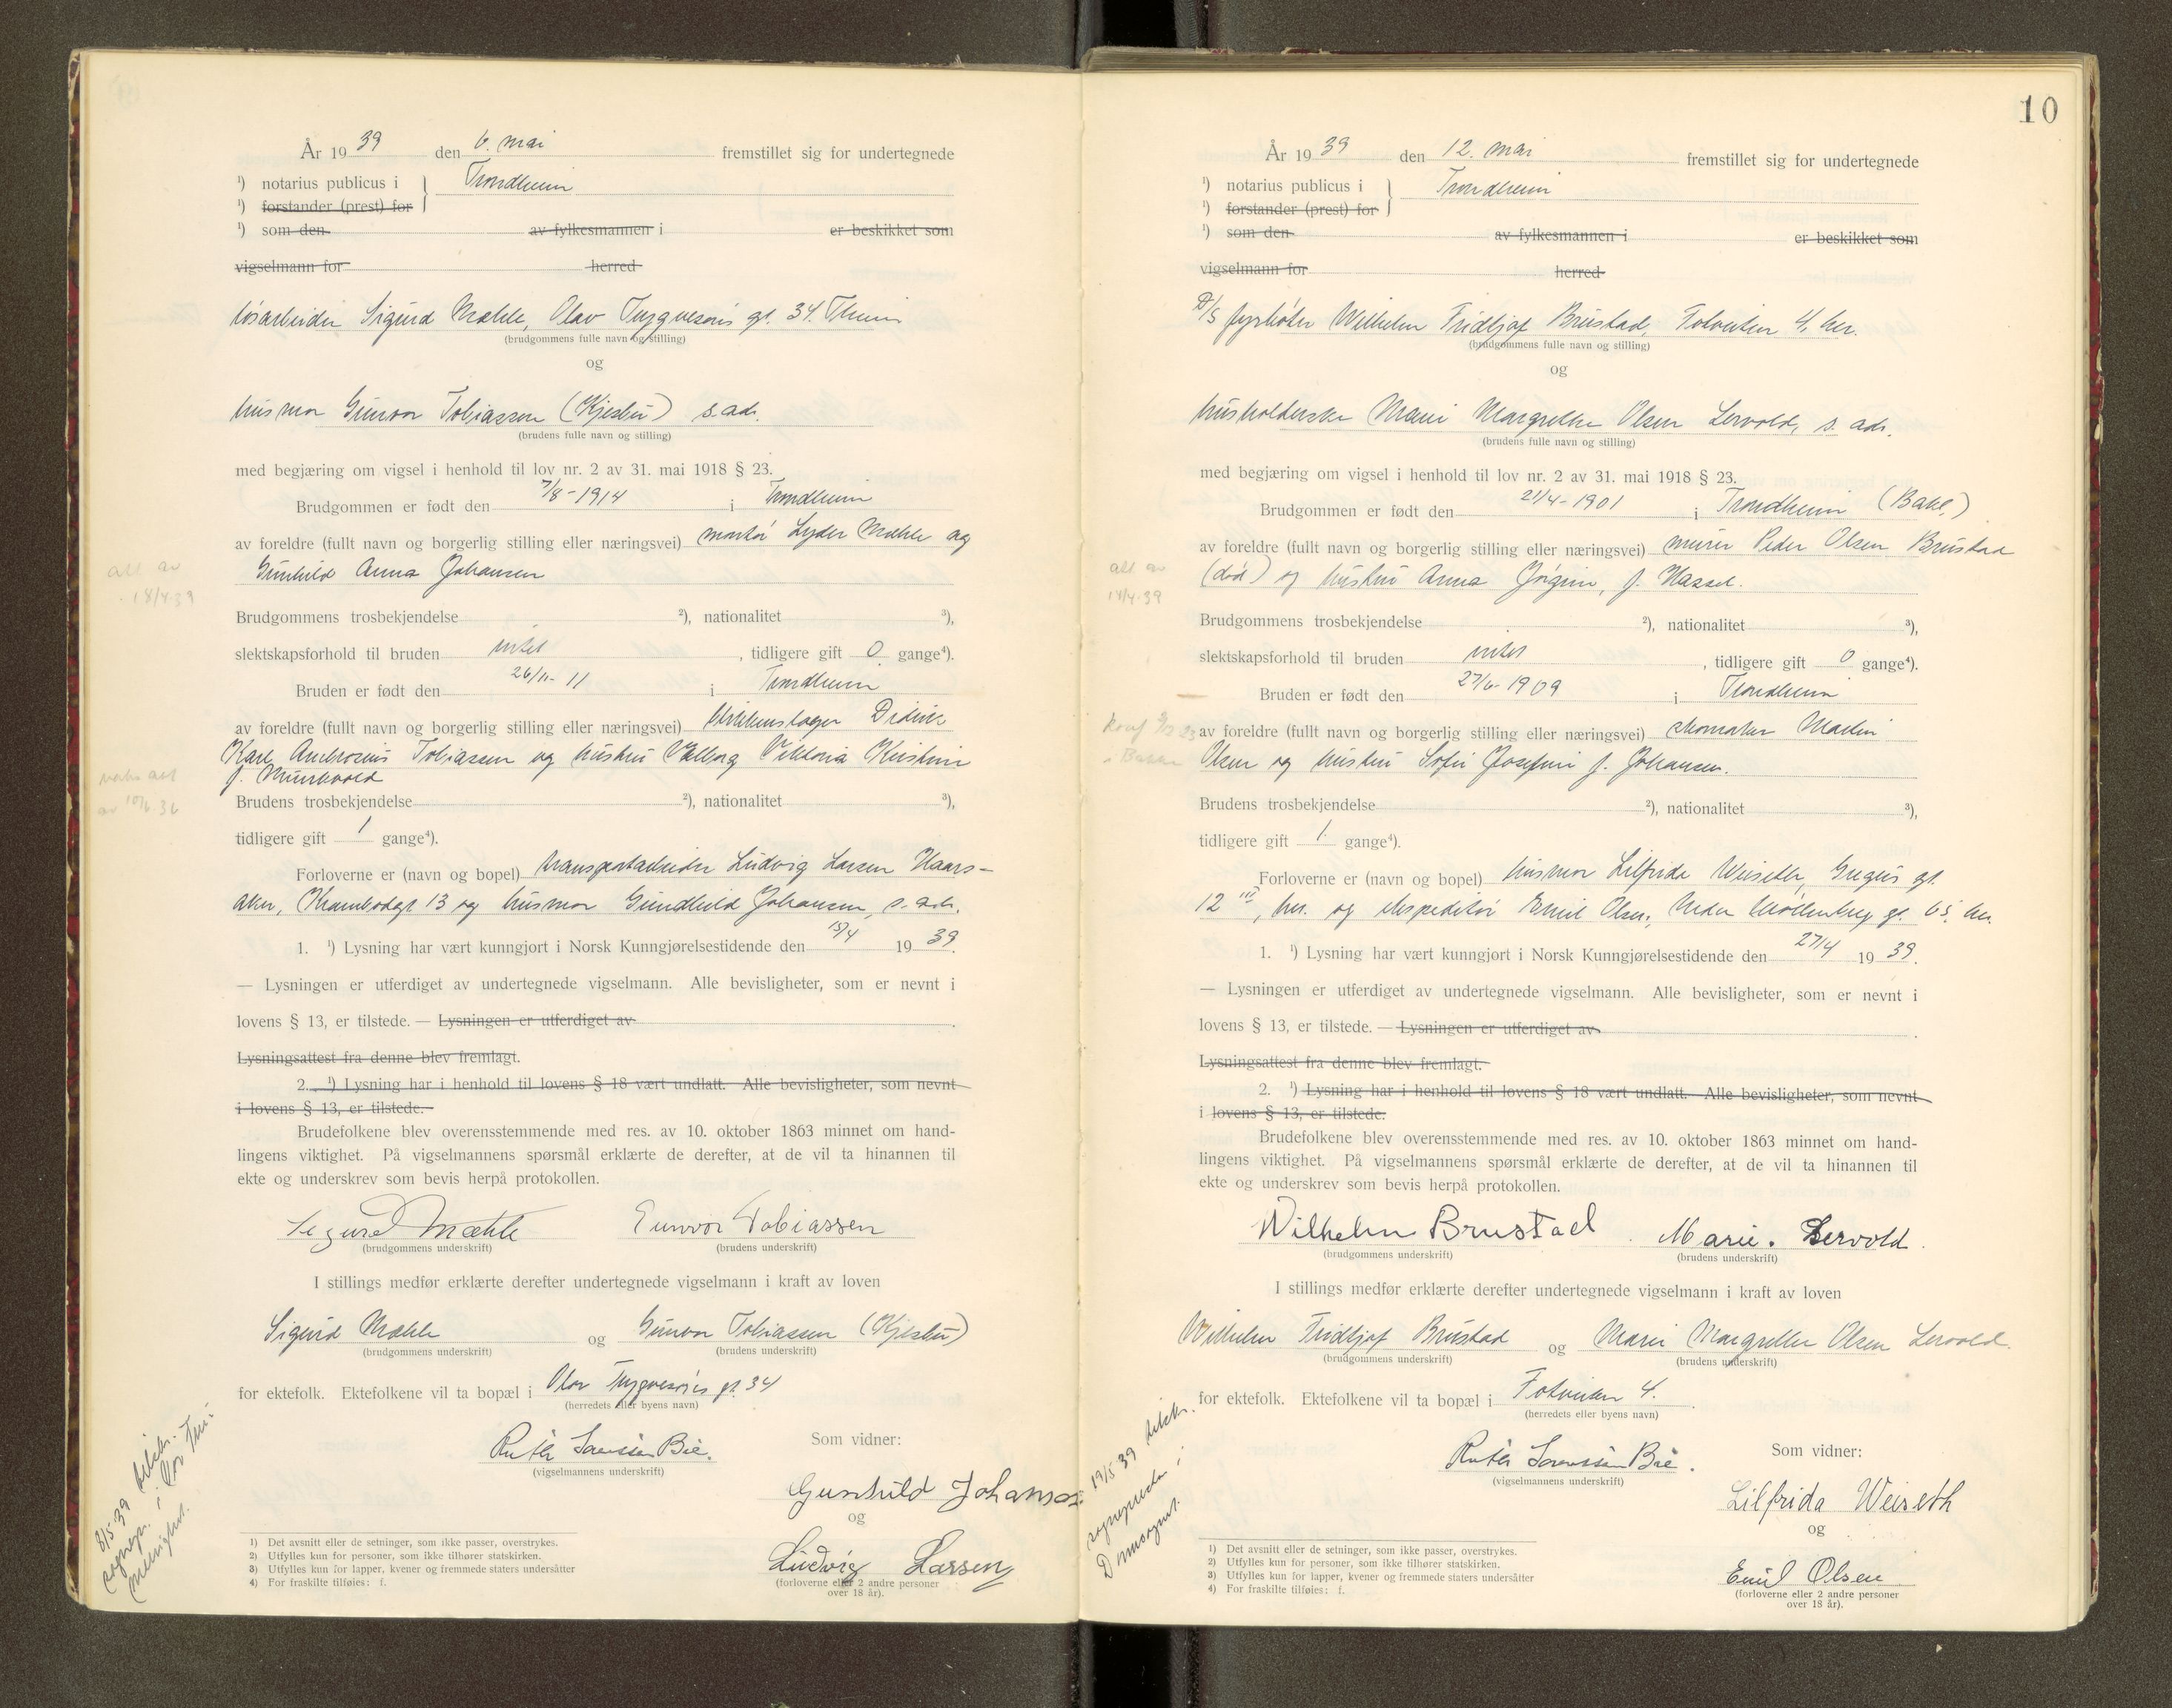 År 19 39 den 6. mai fremstillet sig for undertegnede
¹) notarius publicus i } Trondheim
¹) forstander (prest) for
¹) som den av fylkesmannen i er beskikket som
vigselmann for herred
løsarbeider Sigurd Mæhle, Olav Trygvesøns gt. 34. Theim
(brudgommens fulle navn og stilling)
og
husmor Gunvor Tobiassen (Kjesbu) s. adr.
(brudens fulle navn og stilling)
med begjæring om vigsel i henhold til lov nr. 2 av 31. mai 1918 § 23.
Brudgommen er født den 7/8-1914 i Trondheim
av foreldre (fullt navn og borgerlig stilling eller næringsvei) montør Lyder Mæhle og
Gunhild Anna Johansen
att av
18/4.39
Brudgommens trosbekjendelse ²), nationalitet ³),
slektskapsforhold til bruden intet, tidligere gift 0 gange⁴).
Bruden er født den 26/11-11 i Trondheim
av foreldre (fullt navn og borgerlig stilling eller næringsvei) blikkenslager Didrik
Karl Ambrosius Tobiassen og hustru Valborg Viktoria Kristine
f. Munkvold
att
av 10/6.36
Brudens trosbekjendelse ²), nationalitet ³),
tidligere gift 1 gange⁴).
Forloverne er (navn og bopel) transportarbeider Ludvig Larsen Haars-
aker, Krambodgt 13 og husmor Gundhild Johansen, s. adr.
1. ¹) Lysning har vært kunngjort i Norsk Kunngjørelsestidende den 15/4 19 39.
— Lysningen er utferdiget av undertegnede vigselmann. Alle bevisligheter, som er nevnt i
lovens § 13, er tilstede. — Lysningen er utferdiget av .
Lysningsattest fra denne blev fremlagt.
2. ¹) Lysning har i henhold til lovens § 18 vært undlatt. Alle bevisligheter, som nevnt
i lovens § 13, er tilstede.
Brudefolkene blev overensstemmende med res. av 10. oktober 1863 minnet om hand-
lingens viktighet. På vigselmannens spørsmål erklærte de derefter, at de vil ta hinannen til
ekte og underskrev som bevis herpå protokollen.
Sigurd Mæhle Gunvor Tobiassen
(brudgommens underskrift) (brudens underskrift)
I stillings medfør erklærte derefter undertegnede vigselmann i kraft av loven
Sigurd Mæhle og Gunvor Tobiassen (Kjesbu)
(brudgommens underskrift) (brudens underskrift)
for ektefolk. Ektefolkene vil ta bopæl i Olav Trygvesøns gt. 34
(herredets eller byens navn)
Ruth Sorenssen Bie.
(vigselmannens underskrift)
Som vidner:
Gunhild Johansen
og
Ludvig Larsen
(forloverne eller 2 andre personer
over 18 år).
8/5-39
sognepr. i Vor Frue
menighet.
1) Det avsnitt eller de setninger, som ikke passer, overstrykes.
2) Utfylles kun for personer, som ikke tilhører statskirken.
3) Utfylles kun for lapper, kvener og fremmede staters undersåtter
4) For fraskilte tilføies: f.
10
År 19 39 den 12. mai fremstillet sig for undertegnede
¹) notarius publicus i } Trondheim
¹) forstander (prest) for
¹) som den av fylkesmannen i er beskikket som
vigselmann for herred
D/S fyrbøter Wilhelm Fridtjof Brustad, Fotveiten 4, her.
(brudgommens fulle navn og stilling)
og
husholderske Marie Margrethe Olsen Lervold, s. adr.
(brudens fulle navn og stilling)
med begjæring om vigsel i henhold til lov nr. 2 av 31. mai 1918 § 23.
Brudgommen er født den 21/4-1901 i Trondheim (Bakl.)
av foreldre (fullt navn og borgerlig stilling eller næringsvei) murer Peder Olsen Brustad
(død) og hustru Anna Jørgine, f. Hassel.
att av
18/4.39
Brudgommens trosbekjendelse ²), nationalitet ³),
slektskapsforhold til bruden intet, tidligere gift 0 gange⁴).
Bruden er født den 27/6-1909 i Trondheim
av foreldre (fullt navn og borgerlig stilling eller næringsvei) skomaker Martin
Olsen og hustru Sofie Josefine f. Johansen.
konf
i Bakke
Brudens trosbekjendelse ²), nationalitet ³),
tidligere gift 1. gange⁴).
Forloverne er (navn og bopel) husmor Lilfrida Weiseth, Gregus gt.
12 III, her. og ekspeditør Emil Olsen, Nedre Møllenberg gt. 65, her.
1. ¹) Lysning har vært kunngjort i Norsk Kunngjørelsestidende den 27/4 19 39.
— Lysningen er utferdiget av undertegnede vigselmann. Alle bevisligheter, som er nevnt i
lovens § 13, er tilstede. — Lysningen er utferdiget av .
Lysningsattest fra denne blev fremlagt.
2. ¹) Lysning har i henhold til lovens § 18 vært undlatt. Alle bevisligheter, som nevnt
i lovens § 13, er tilstede.
Brudefolkene blev overensstemmende med res. av 10. oktober 1863 minnet om hand-
lingens viktighet. På vigselmannens spørsmål erklærte de derefter, at de vil ta hinannen til
ekte og underskrev som bevis herpå protokollen.
Wilhelm Brustad Marie. Lervold.
(brudgommens underskrift) (brudens underskrift)
I stillings medfør erklærte derefter undertegnede vigselmann i kraft av loven
Wilhelm Fridtjof Brustad og Marie Margrethe Olsen Lervold.
(brudgommens underskrift) (brudens underskrift)
for ektefolk. Ektefolkene vil ta bopæl i Fotveiten 4.
(herredets eller byens navn)
Ruth Sorenssen Bie.
(vigselmannens underskrift)
Som vidner:
Lilfrida Weiseth
og
Emil Olsen
(forloverne eller 2 andre personer
over 18 år).
19/5-39
sogneprest i
Domsognet.
1) Det avsnitt eller de setninger, som ikke passer, overstrykes.
2) Utfylles kun for personer, som ikke tilhører statskirken.
3) Utfylles kun for lapper, kvener og fremmede staters undersåtter
4) For fraskilte tilføies: f.